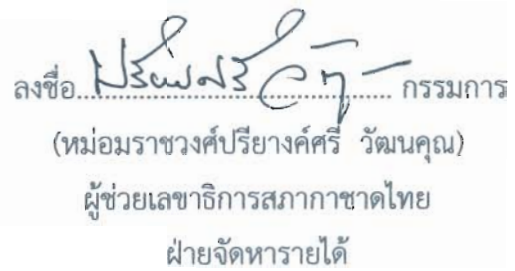 ลงชื่อ.................................... กรรมการ
(หม่อมราชวงศ์ปรียางค์ศรี วัฒนคุณ)
ผู้ช่วยเลขาธิการสภากาชาดไทย
ฝ่ายจัดหารายได้